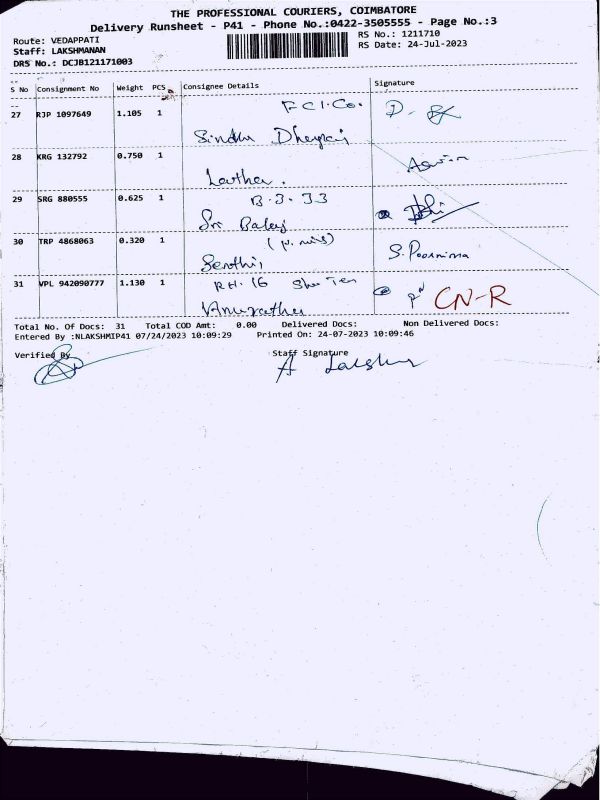 THE PROFESSIONAL COURIERS, COIMBATORE
Delivery Runsheet - P41 - Phone No.:0422-3505555 - Page No.:3
Route: VEDAPPATI
RS No.: 1211710
Staff: LAKSHMANAN
RS Date: 24-Jul-2023
DRS No.: DCJB121171003
S No Consignment No Weight PCS Consignee Details Signature
27 RJP 1097649 1.105 1
Sindhu
28 KRG 132792 0.750 1
Latha.
29 SRG 880555 0.625 1
Sri Balaj
30 TRP 4868063 0.320 1
Senthil S. Poornima
31 VPL 942090777 1.130 1 RH. 16
CN-R
Total No. Of Docs: 31 Total COD Amt: 0.00 Delivered Docs: Non Delivered Docs:
Entered By :NLAKSHMIP41 07/24/2023 10:09:29 Printed On: 24-07-2023 10:09:46
Verified By Staff Signature